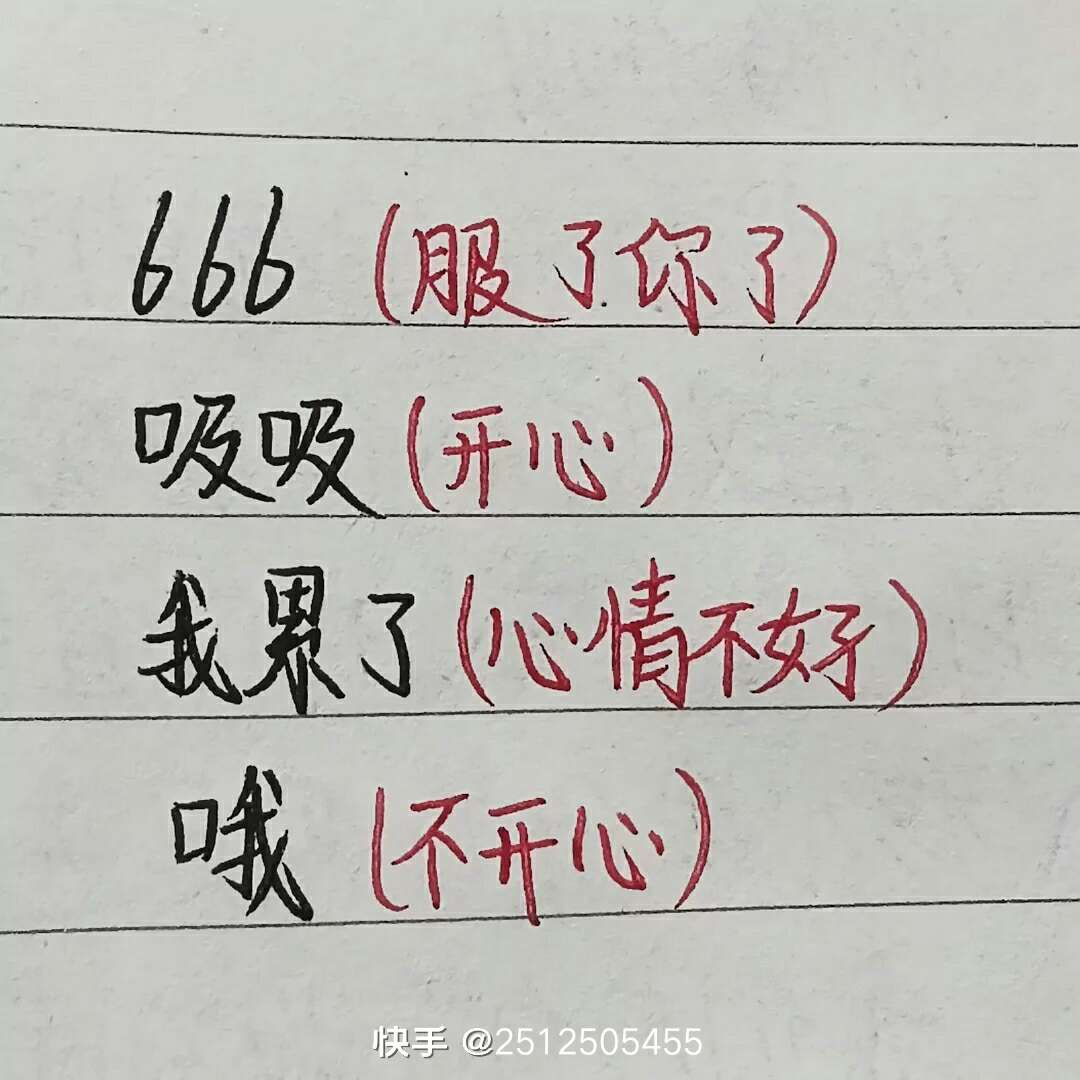 666（服了你了）
吸吸（开心）
我累了（心情不好）
哦（不开心）
快手 @2512505455